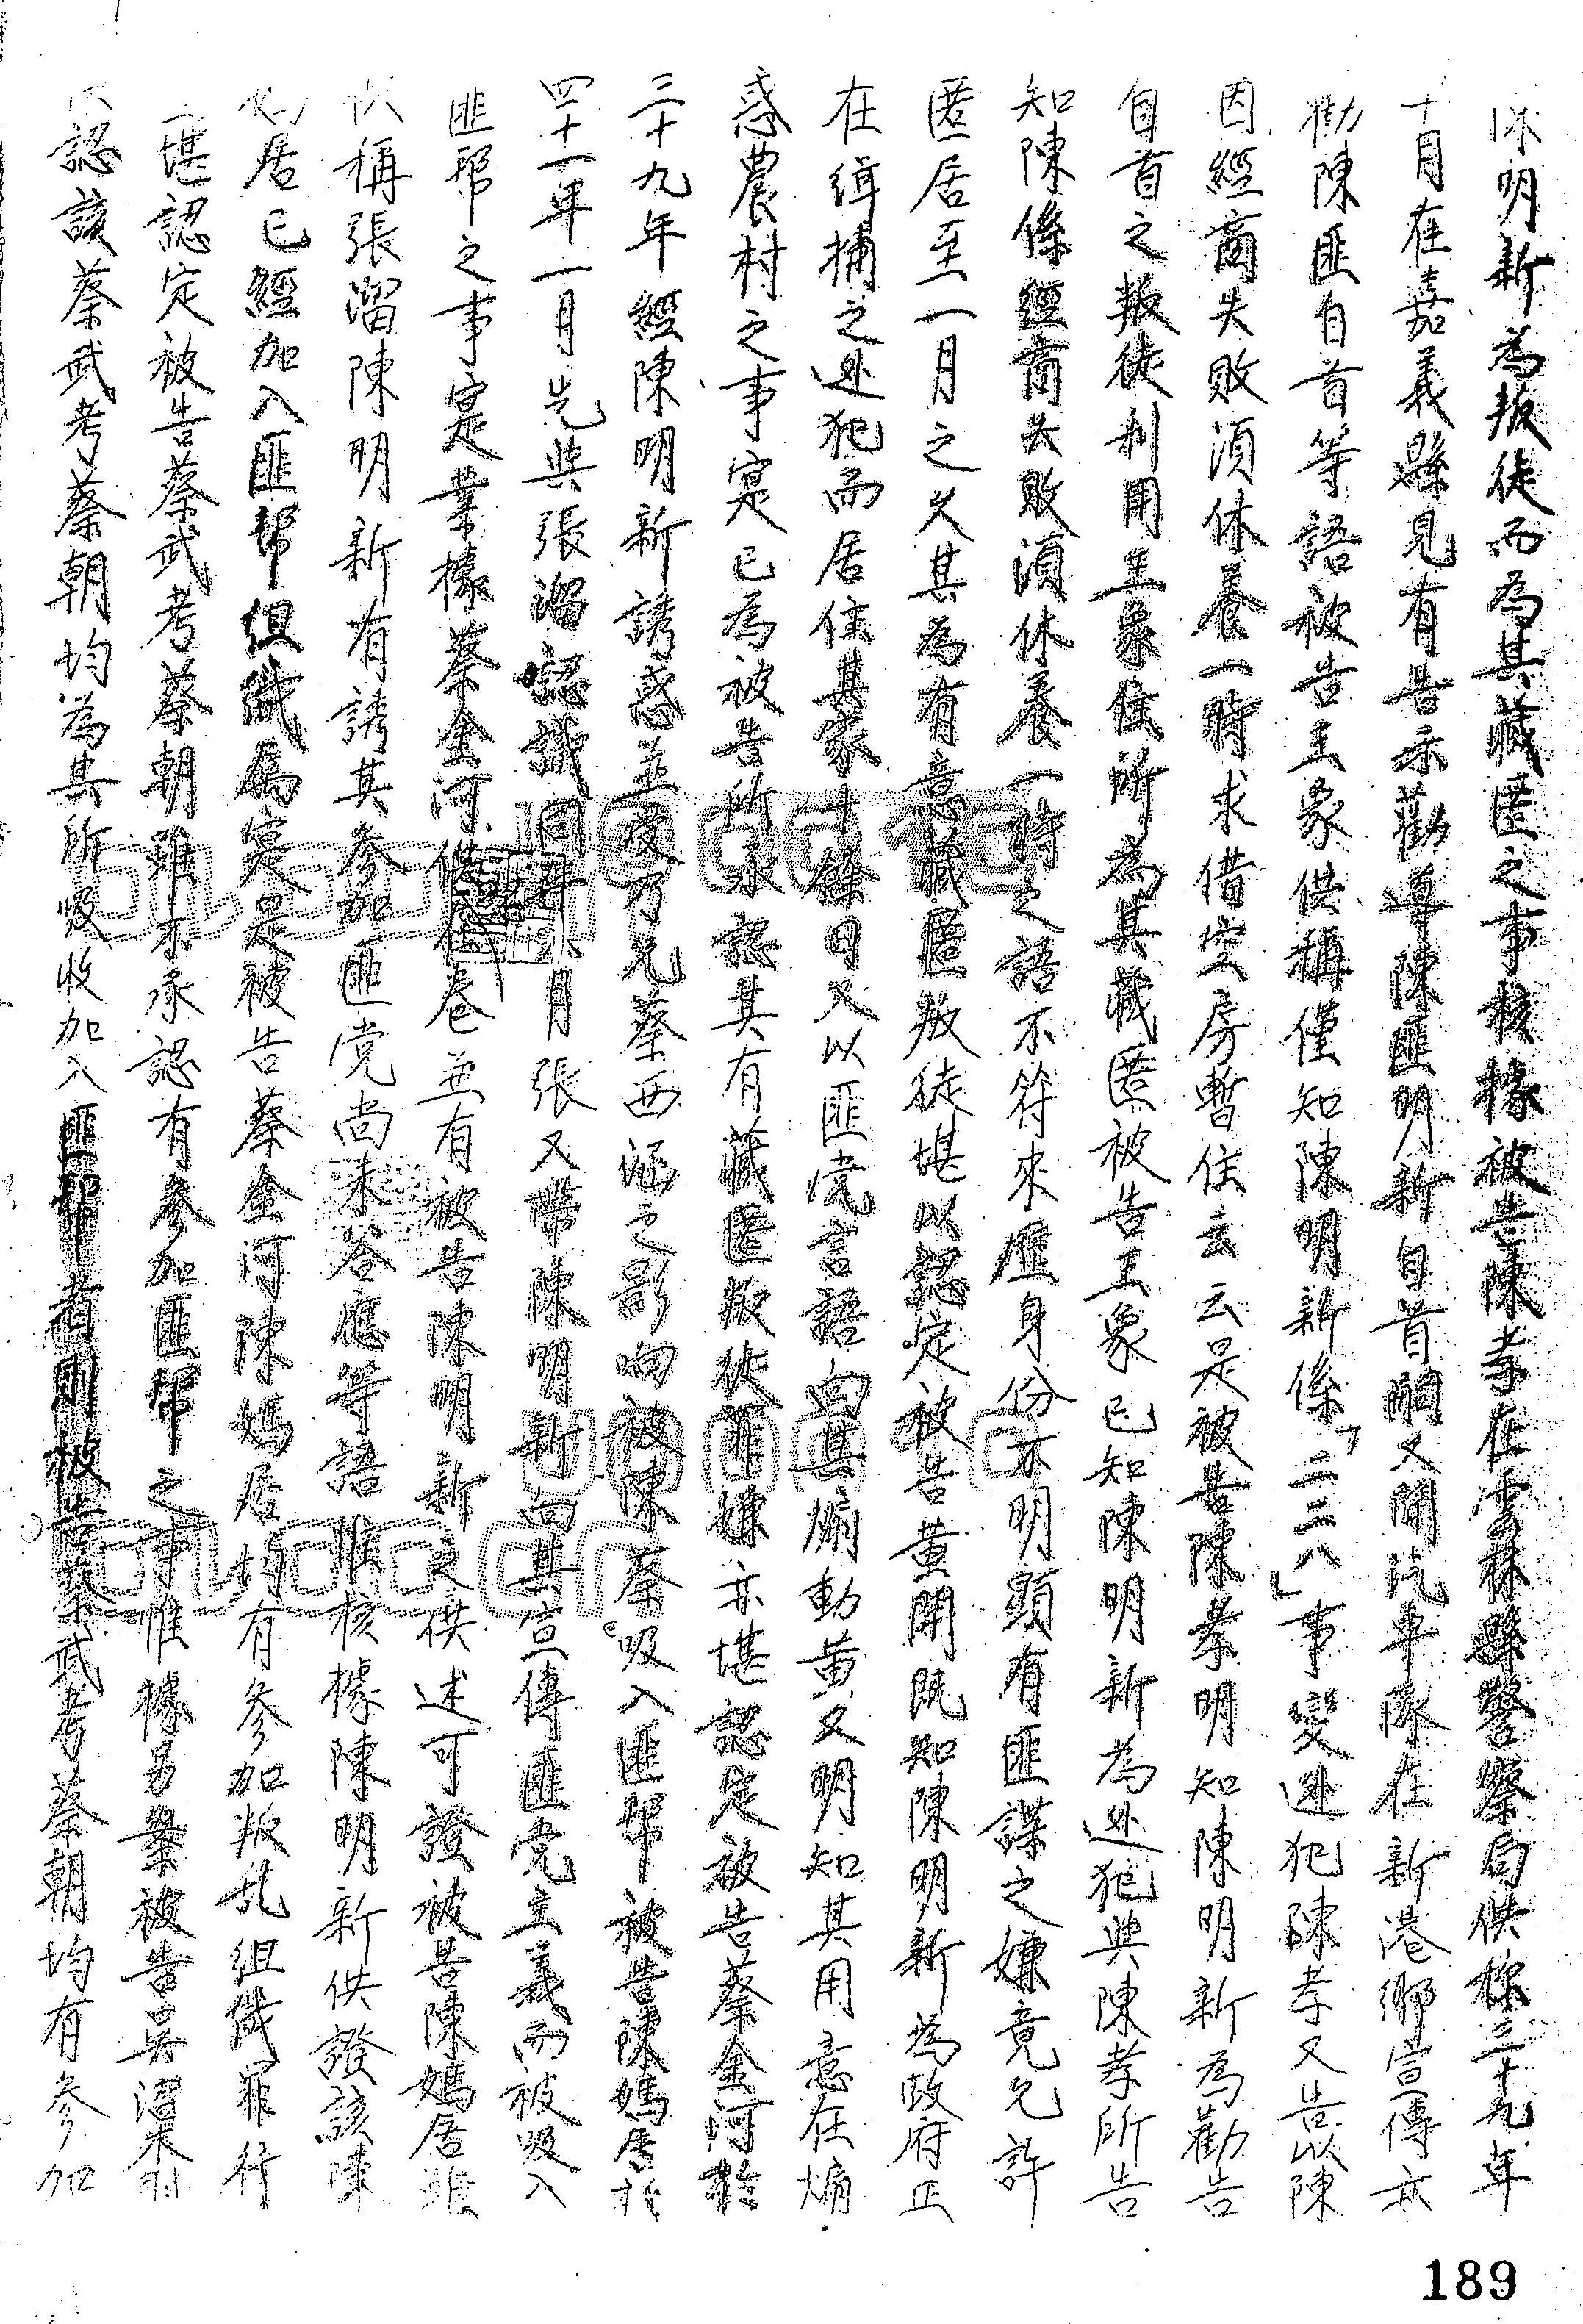 明新為叛徒而為其藏匿之事核據被告陳孝在雲林縣警察局供稱三十九年
十月在嘉義縣見有告示勸導陳匪明新自首嗣又聞汽車隊在新港鄉宣傳亦
勸陳匪自首等語被告王象供稱僅知陳明新係「二二八」事變逃犯陳孝又告以陳
因經商失敗須休養一時求借空房暫住云云是被告陳孝明知陳明新為勸告
自首之叛徒利用王象住所為其藏匿被告王象已知陳明新為逃犯與陳孝所告
知陳係經商失敗須休養一時之語不符來歷身份亦明顯有匪諜之嫌竟允許
匿居至一月之久其為有意藏匿叛徒堪以認定被告黃開既知陳明新為政府正
在緝捕之逃犯而居住其家十餘日又以匪党言語向其煽動黃又明知其用意在煽
惑農村之事寔已為被告所承認其有藏匿叛徒罪嫌亦堪認定被告蔡金河於
三十九年經陳明新誘惑並受乃兄蔡西涵之影响被陳蔡吸入匪帮被告陳媽居於
四十一年一月先與張溜認識同年八月張又帶陳明新向其宣傳匪党主義而被吸入
匪帮之事寔業據蔡金河供認在卷並有被告陳明新之供述可證被告陳媽居雖
供稱張溜陳明新有誘其參加匪党尚未答應等語惟核據陳明新供證該陳
媽居已經加入匪帮組織屬寔是被告蔡金河陳媽居均有參加叛乱組織罪行
堪認定被告蔡武考蔡朝雖不承認有參加匪帮之事惟據另案被告吳溜
認該蔡武考蔡朝均為其所吸收加入匪帮者則被告蔡武考蔡朝均有參加
189